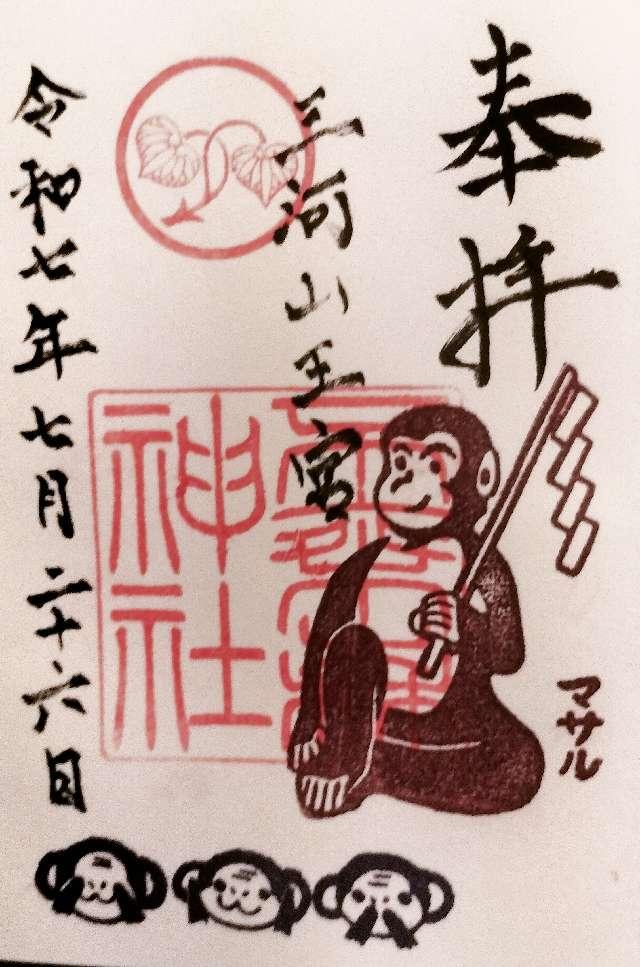 奉拝
三河山王宮
神社
マサル
令和七年七月二十六日